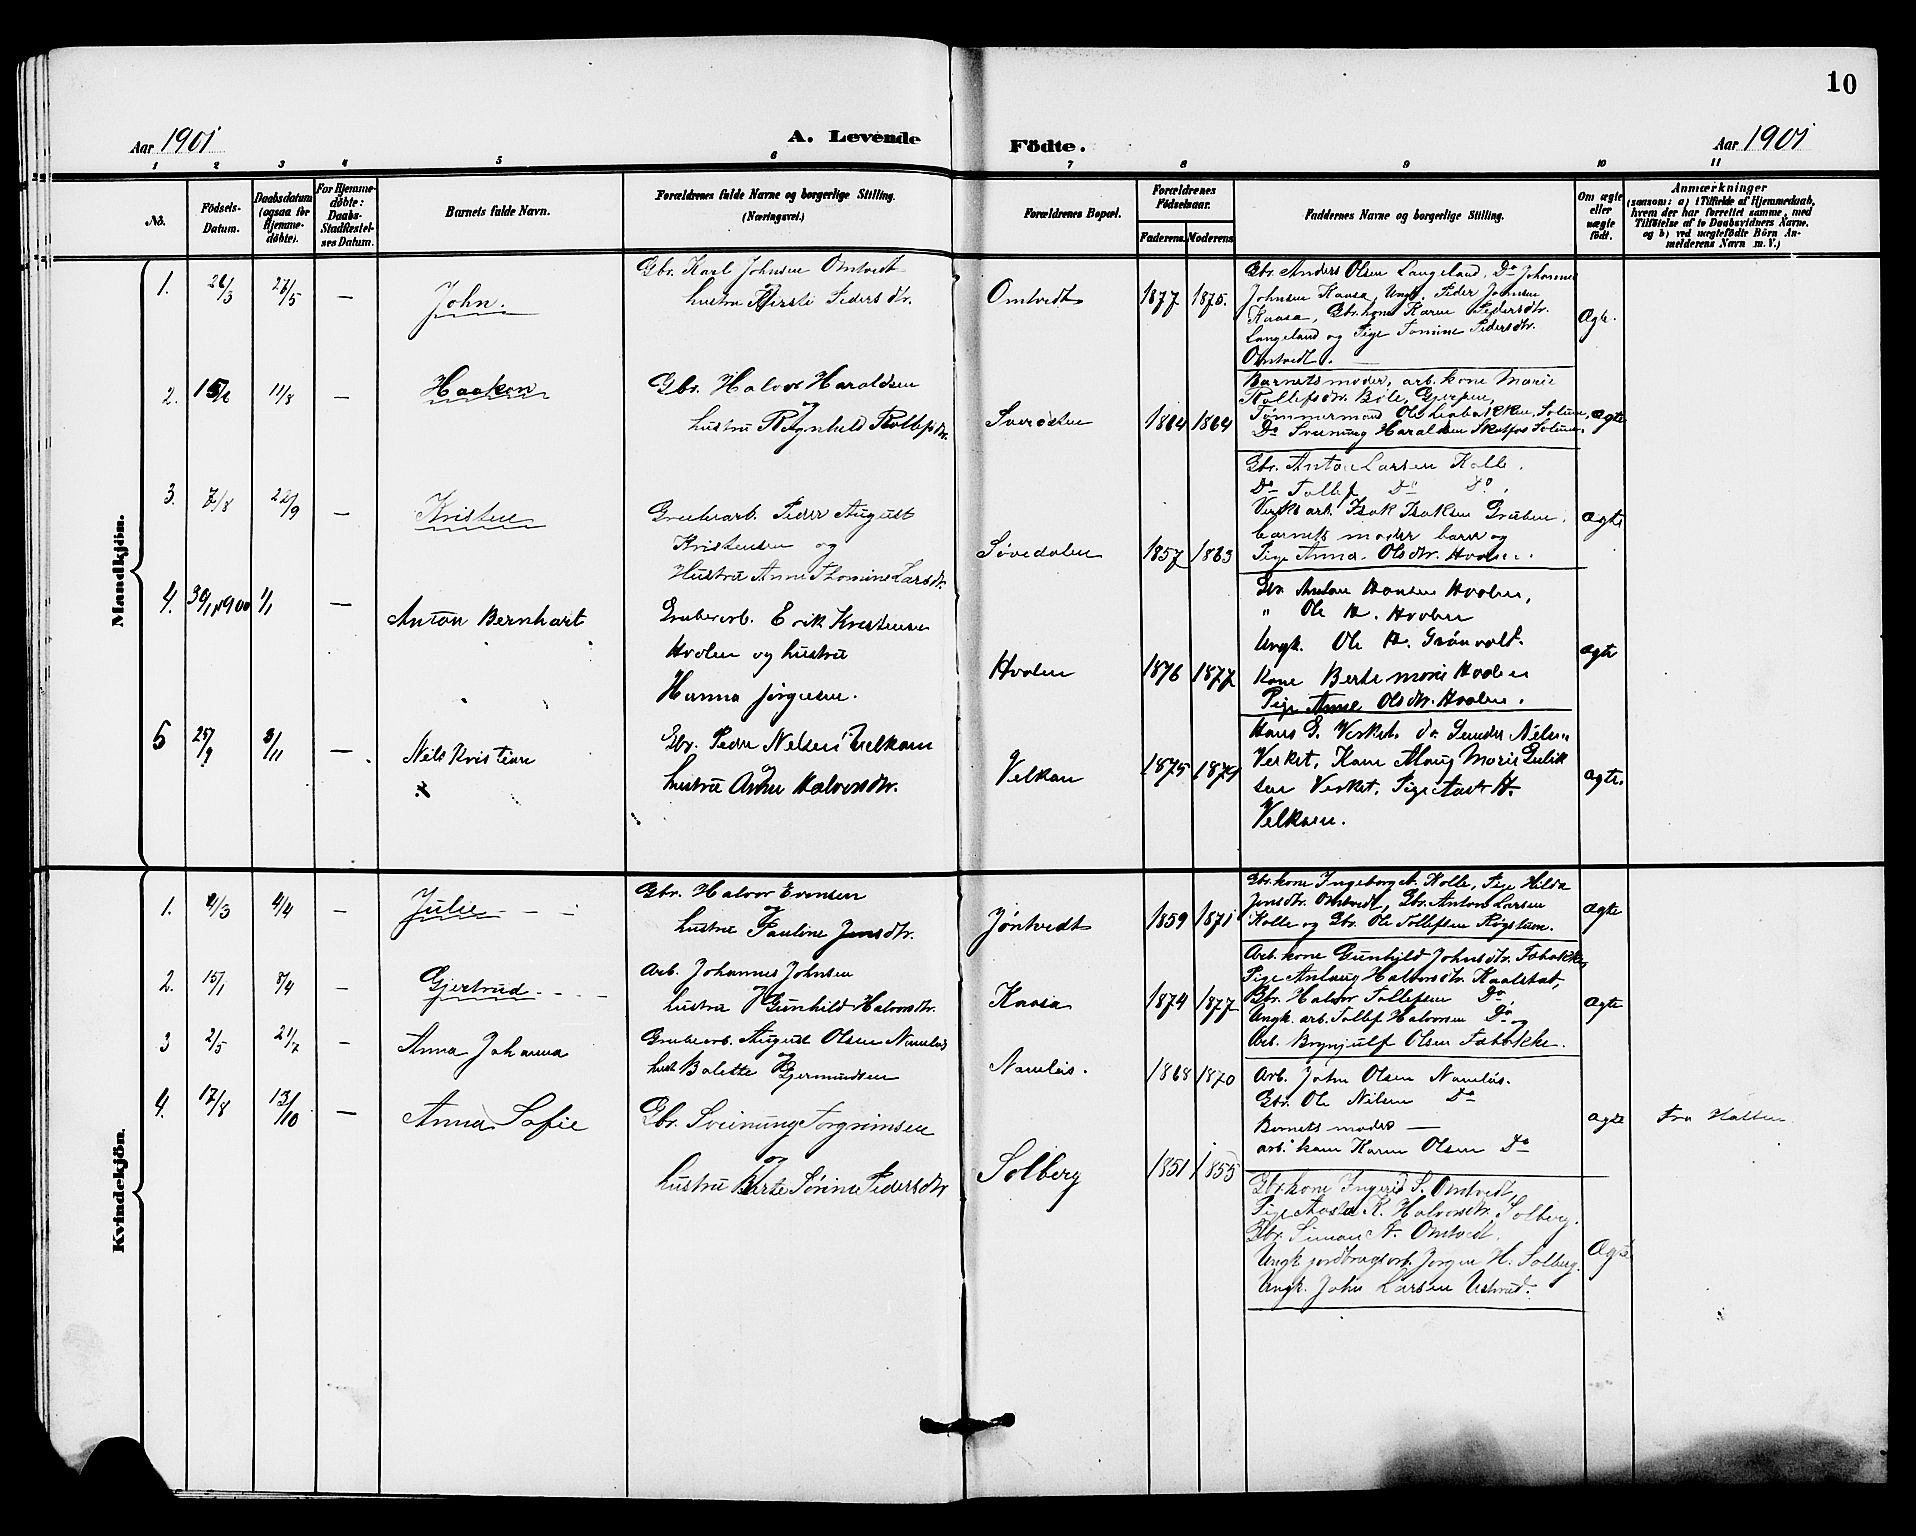 10
Aar 1901
A. Levende
Födte.
Aar 1901
1 2 3 4 5 6 7 8 9 10 11
No.
Födsels-Datum.
Daabsdatum (ogsaa for Hjemmedöbte).
For Hjemmedöbte: Daabs-Stadfæstelses Datum.
Barnets fulde Navn.
Forældrenes fulde Navne og borgerlige Stilling. (Næringsvei.)
Forældrenes Bopæl.
Forældrenes Födselsaar.
Faderens. Moderens
Faddernes Navne og borgerlige Stilling.
Om ægte eller uægte födt.
Anmærkninger
(saasom: a) i Tilfælde af Hjemmedaab, hvem der har forrettet samme, med Tilföielse af to Daabsvidners Navne, og b) ved uægtefödte Börn Anmelderens Navn m. V.)
Mandkjön.
1. 26/3 27/5 — John.
Gbr. Karl Johnsen Omtvedt
og
hustru Kirsti Pedersdtr.
Omtvedt 1877 1875.
Gbr. Anders Olsen Langeland, Do Johannes
Johnsen Kaasa, Ungk. Peder Johnsen
Kaasa, Gbr. kone Karen Pedersdtr.
Langeland og Pige Tomine Pedersdtr.
Omtvedt.
Ægte.
2. 15/6 11/8 — Haakon
Gbr. Halvor Haraldsen
og
hustru Ragnhild Rollefsdtr.
1864 1864
Barnets moder, arb. kone Marie
Rollefsdtr. Böle, Gjerpen,
Tömmermand Ole Solum,
Do Sveinung Haraldsen Skotfos Solum.
Ægte
3. 7/8 22/9 — Kristen
Grubearb. Peder August
Kristensen og
Hustru Anne Thomine Larsdtr.
Søvedalen 1857 1863
Gbr. Anton Larsen Kolle.
Do Tollef Do Do,
Verksarb. Isak Isaksen Gruben.
barnets moder bara og
Pige Anna Olsdtr. Hvalen.
Ægte
4. 30/11 1900 1/1 — Anton Bernhart
Grubearb. Erik Kristensen
Hvalen og hustru
Hanna Jörgensen.
Hvalen 1876 1877
Gbr. Anton Hansen Hvalen,
" Ole H. Hvalen
Ungk. Ole H. Grönvold.
Kone Berte marie Hvalen
Pige Anne Olsdtr. Hvalen.
Ægte
5 25/9 3/11 — Nils Kristian
Gbr. Peder Nelsen Velkaen
og
hustru Anne Halvorsdtr.
Velkaen 1875 1874
Hans E. Verket, do. Gunder Nilsen
Verket, Kone Maug Marie
sen Verket. Pige H.
Velkaen.
Ægte.
Kvindekjön.
1. 4/3 4/4 — Julie
Gbr. Halvor Evensen
og
hustru Pauline Jensdtr.
Jöntvedt 1859 1871
Gbr. kone Ingeborg A. Kolle, Pige Hilda
Jensdtr. Omtvedt, Gbr. Anton Larsen
Kolle og Gbr. Ole Tollefsen
Ægte
2. 15/1 8/4 — Gjertrud
Arb. Johannes Johnsen
og
hustru Gunhild Halvorsdtr.
Kaasa 1874 1877
Arb. kone Gunhild Johnsdtr. Fæbakke,
Pige Anlaug Halvorsdtr. Kaalstad,
Gbr. Halvor Tollefsen Do,
Ungk. arb. Tollef Halvorsen Do og
Arb. Brynjulf Olsen Fæbakke.
Ægte
3 2/5 21/7 — Anna Johanna
Grubearb. August Olsen Navnlös
og
hust. Bolette Gjermundsen
Navnlös. 1868 1870
Arb. John Olsen Navnlös.
Gbr. Ole Nilsen Do
Barnets moder —
arb. kone Karen Olsen Do
Ægte
Fra Holten
4. 17/8 13/10 — Anna Sofie
Gbr. Sveinung Torgrimsen
og
hustru Berte Sørine Pedersdtr
Solberg 1851 1855
Gbr. kone Ingerid S. Omtvedt,
Pige Aaste K. Halvorsdtr. Solberg.
Gbr. Simon A. Omtvedt.
Ungk. jordbrugsarb. Jörgen H. Solberg.
Ungk. John Larsen Ustrud.
Ægte